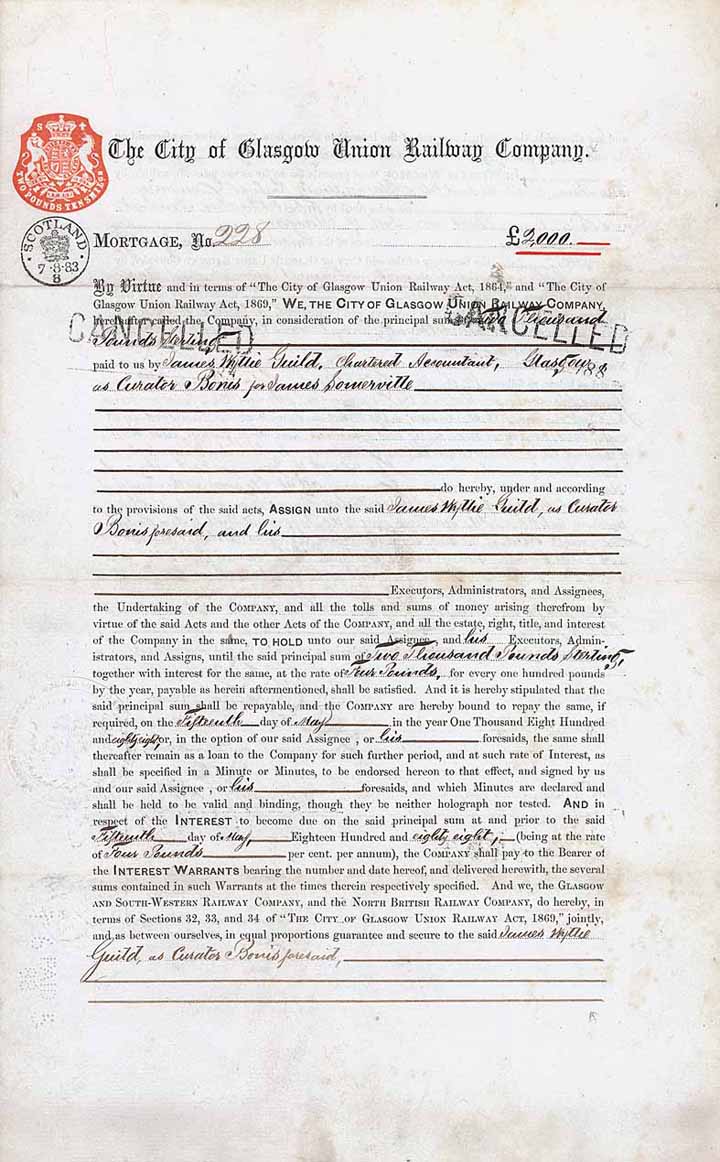 The City of Glasgow Union Railway Company.
S
TWO POUNDS TEN SHILGS
SCOTLAND
7·8·83
8
MORTGAGE, No. 228 £2,000.
By Virtue and in terms of "The City of Glasgow Union Railway Act, 1864," and "The City of
Glasgow Union Railway Act, 1869," WE, THE CITY OF GLASGOW UNION RAILWAY COMPANY,
hereinafter called the Company, in consideration of the principal sum of Two Thousand
CANCELLED CANCELLED
Pounds Sterling
paid to us by James Wyllie Guild, Chartered Accountant, Glasgow
as Curator Bonis for James Somerville
do hereby, under and according
to the provisions of the said acts, ASSIGN unto the said James Wyllie Guild, as Curator
Bonis foresaid, and his
Executors, Administrators, and Assignees,
the Undertaking of the COMPANY, and all the tolls and sums of money arising therefrom by
virtue of the said Acts and the other Acts of the COMPANY, and all the estate, right, title, and interest
of the Company in the same, TO HOLD unto our said Assignee, and his Executors, Admin-
istrators, and Assigns, until the said principal sum of Two Thousand Pounds Sterling,
together with interest for the same, at the rate of Four Pounds, for every one hundred pounds
by the year, payable as herein aftermentioned, shall be satisfied. And it is hereby stipulated that the
said principal sum shall be repayable, and the COMPANY are hereby bound to repay the same, if
required, on the Fifteenth day of May in the year One Thousand Eight Hundred
and eighty eight, or, in the option of our said Assignee , or his foresaids, the same shall
thereafter remain as a loan to the Company for such further period, and at such rate of Interest, as
shall be specified in a Minute or Minutes, to be endorsed hereon to that effect, and signed by us
and our said Assignee , or his foresaids, and which Minutes are declared and
shall be held to be valid and binding, though they be neither holograph nor tested. AND in
respect of the INTEREST to become due on the said principal sum at and prior to the said
Fifteenth day of May, Eighteen Hundred and eighty eight, (being at the rate
of Four Pounds per cent. per annum), the COMPANY shall pay to the Bearer of
the INTEREST WARRANTS bearing the number and date hereof, and delivered herewith, the several
sums contained in such Warrants at the times therein respectively specified. And we, the GLASGOW
AND SOUTH-WESTERN RAILWAY COMPANY, and the NORTH BRITISH RAILWAY COMPANY, do hereby, in
terms of Sections 32, 33, and 34 of "THE CITY OF GLASGOW UNION RAILWAY ACT, 1869," jointly,
and as between ourselves, in equal proportions guarantee and secure to the said James Wyllie
Guild, as Curator Bonis foresaid,